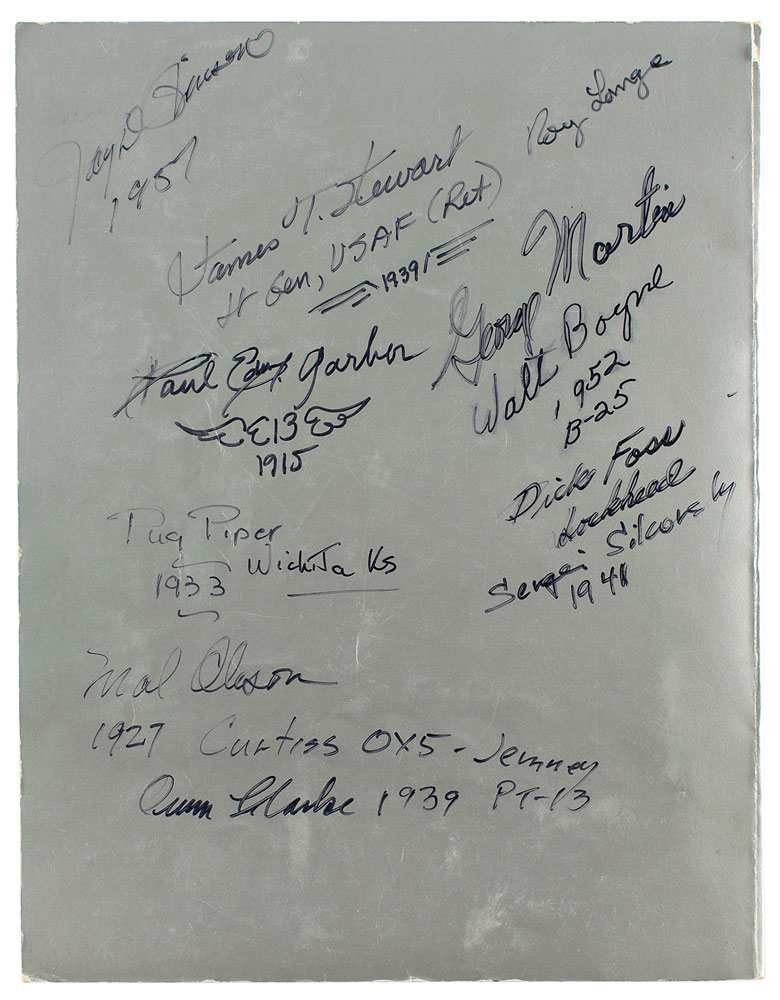 Jay D Stinson
1957
Roy Lange
James T. Stewart
Lt Gen, USAF (Ret)
1939!
George Martin
Walt Boyne
1952
B-25
Paul Edw. Garber
E13
1915
Dick Foss
Lockheed
Sergei Sikorsky
1941
Pug Piper
1933 Wichita Ks
Mal
1927 Curtiss OX5 - Jenney
Clarke 1939 PT-13